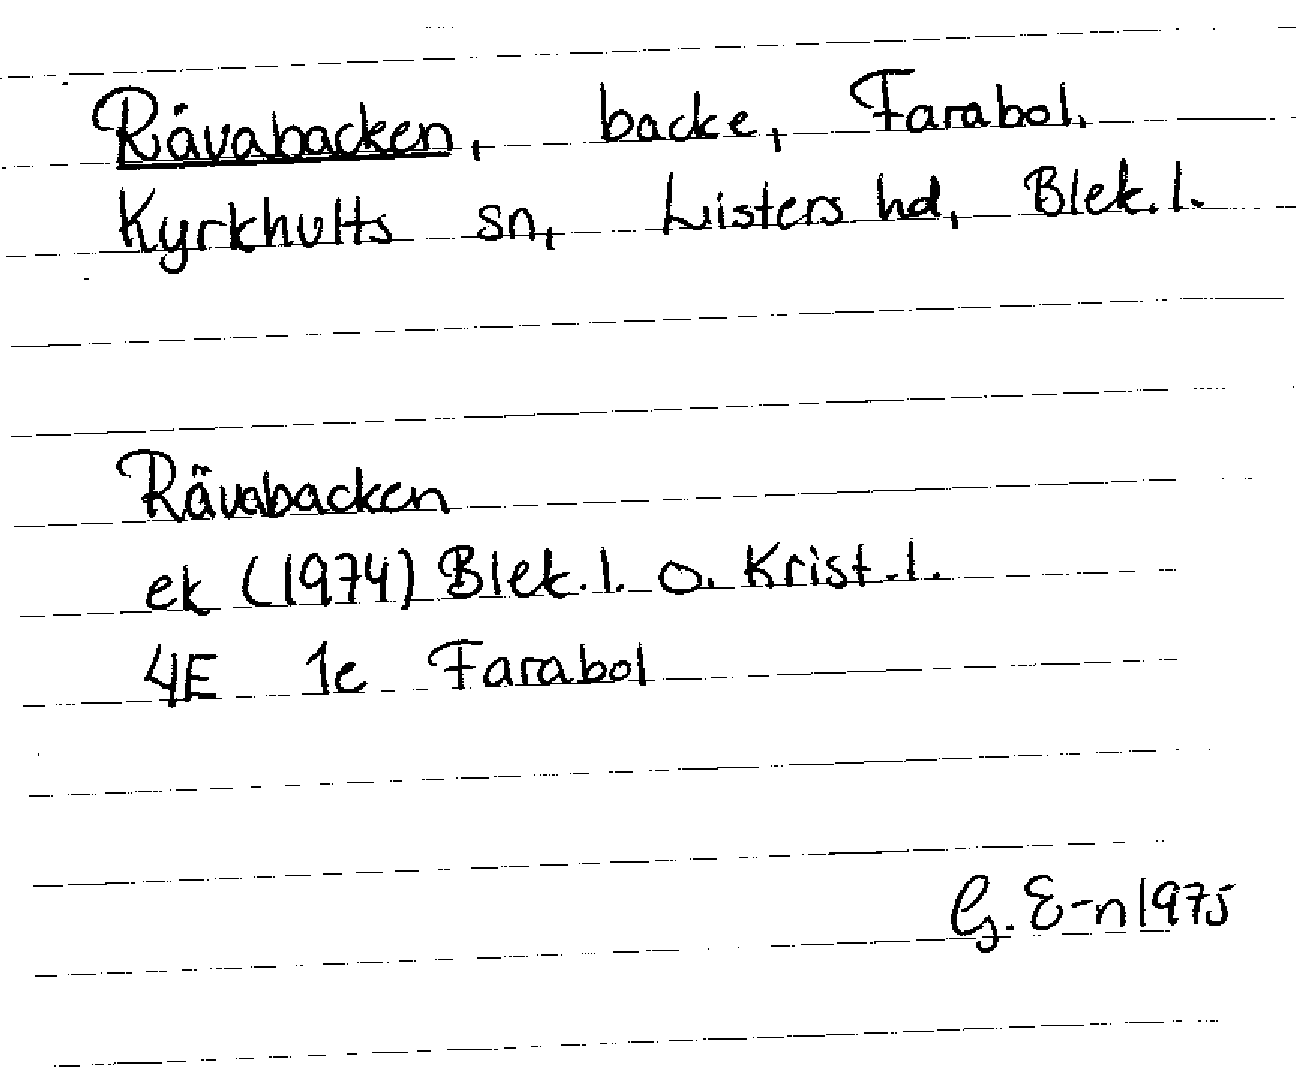 Rävabacken, backe, Farabol,
Kyrkhults sn, Listers hd, Blek.l.
Rävabacken
ek (1974) Blek.l. o. Krist.l.
4E 1e Farabol
G. E-n 1975